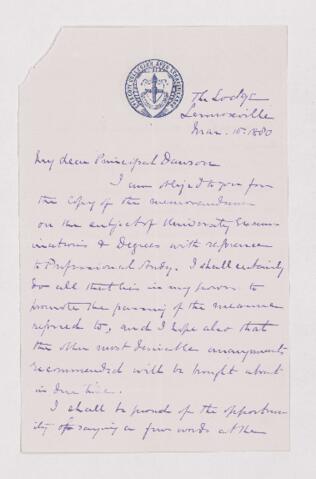 The Lodge
Lennoxville
Mar. 15. 1880
My dear Principal Dawson
I am obliged to you for
the copy of the memorandum
on the subject of University Exam-
inations & Degrees with reference
to Professional Study. I shall certainly
do all that lies in my power to
promote the passing of the measure
referred to, and I hope also that
the other most desirable arrangements
recommended will be brought about
in due time.
I shall be proud of the opportun-
ity of saying a few words at the